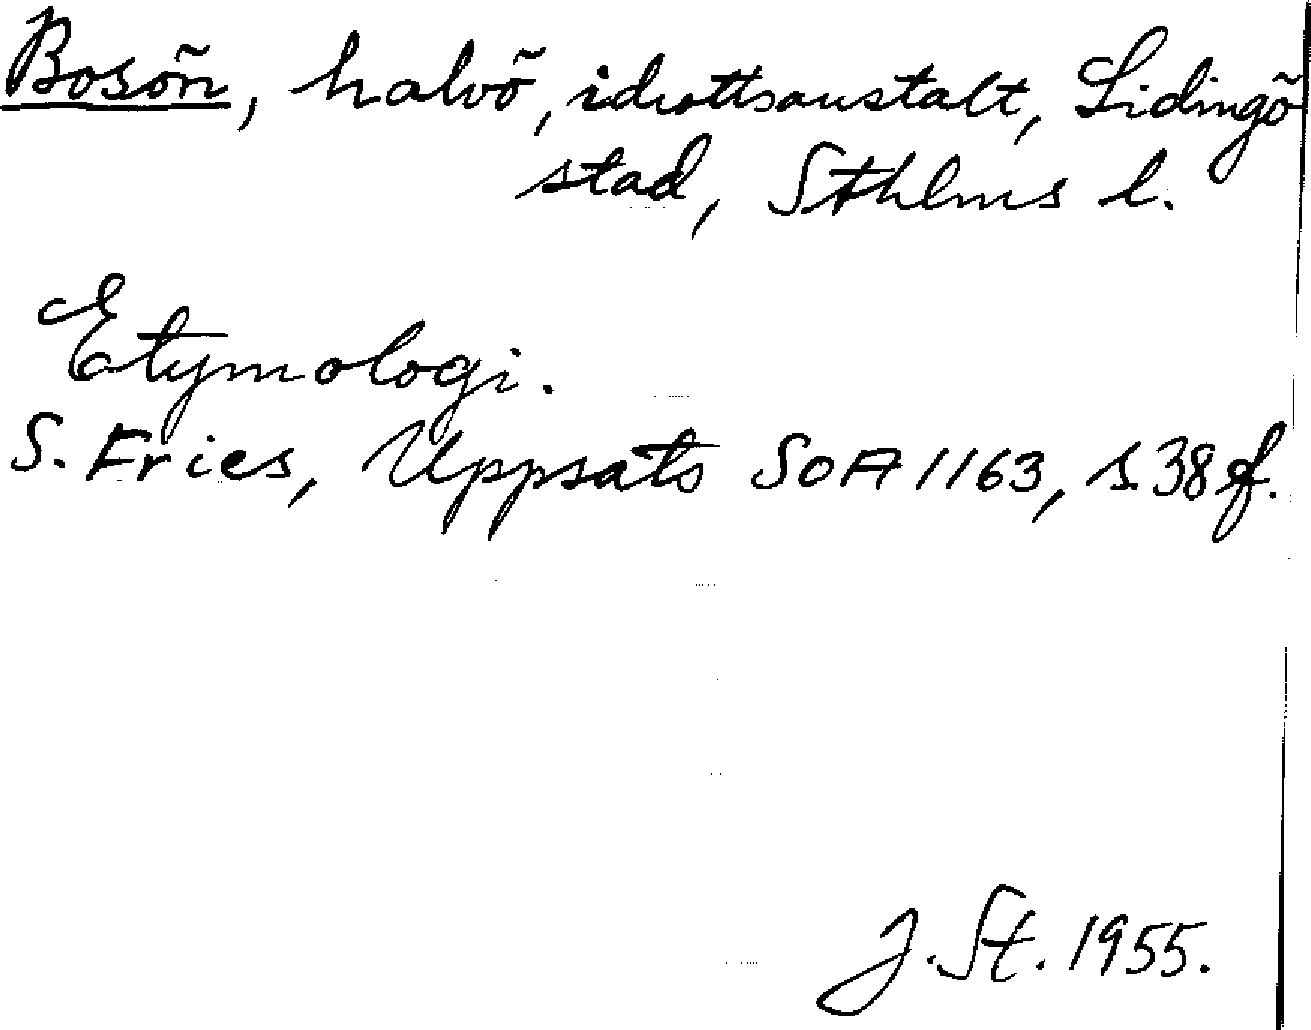 Bosön, halvö, idrottsanstalt, Lidingö
stad, Sthlms l.
Etymologi.
S. Fries, Uppsats SOA 1163, s. 38 f.
J. St. 1955.